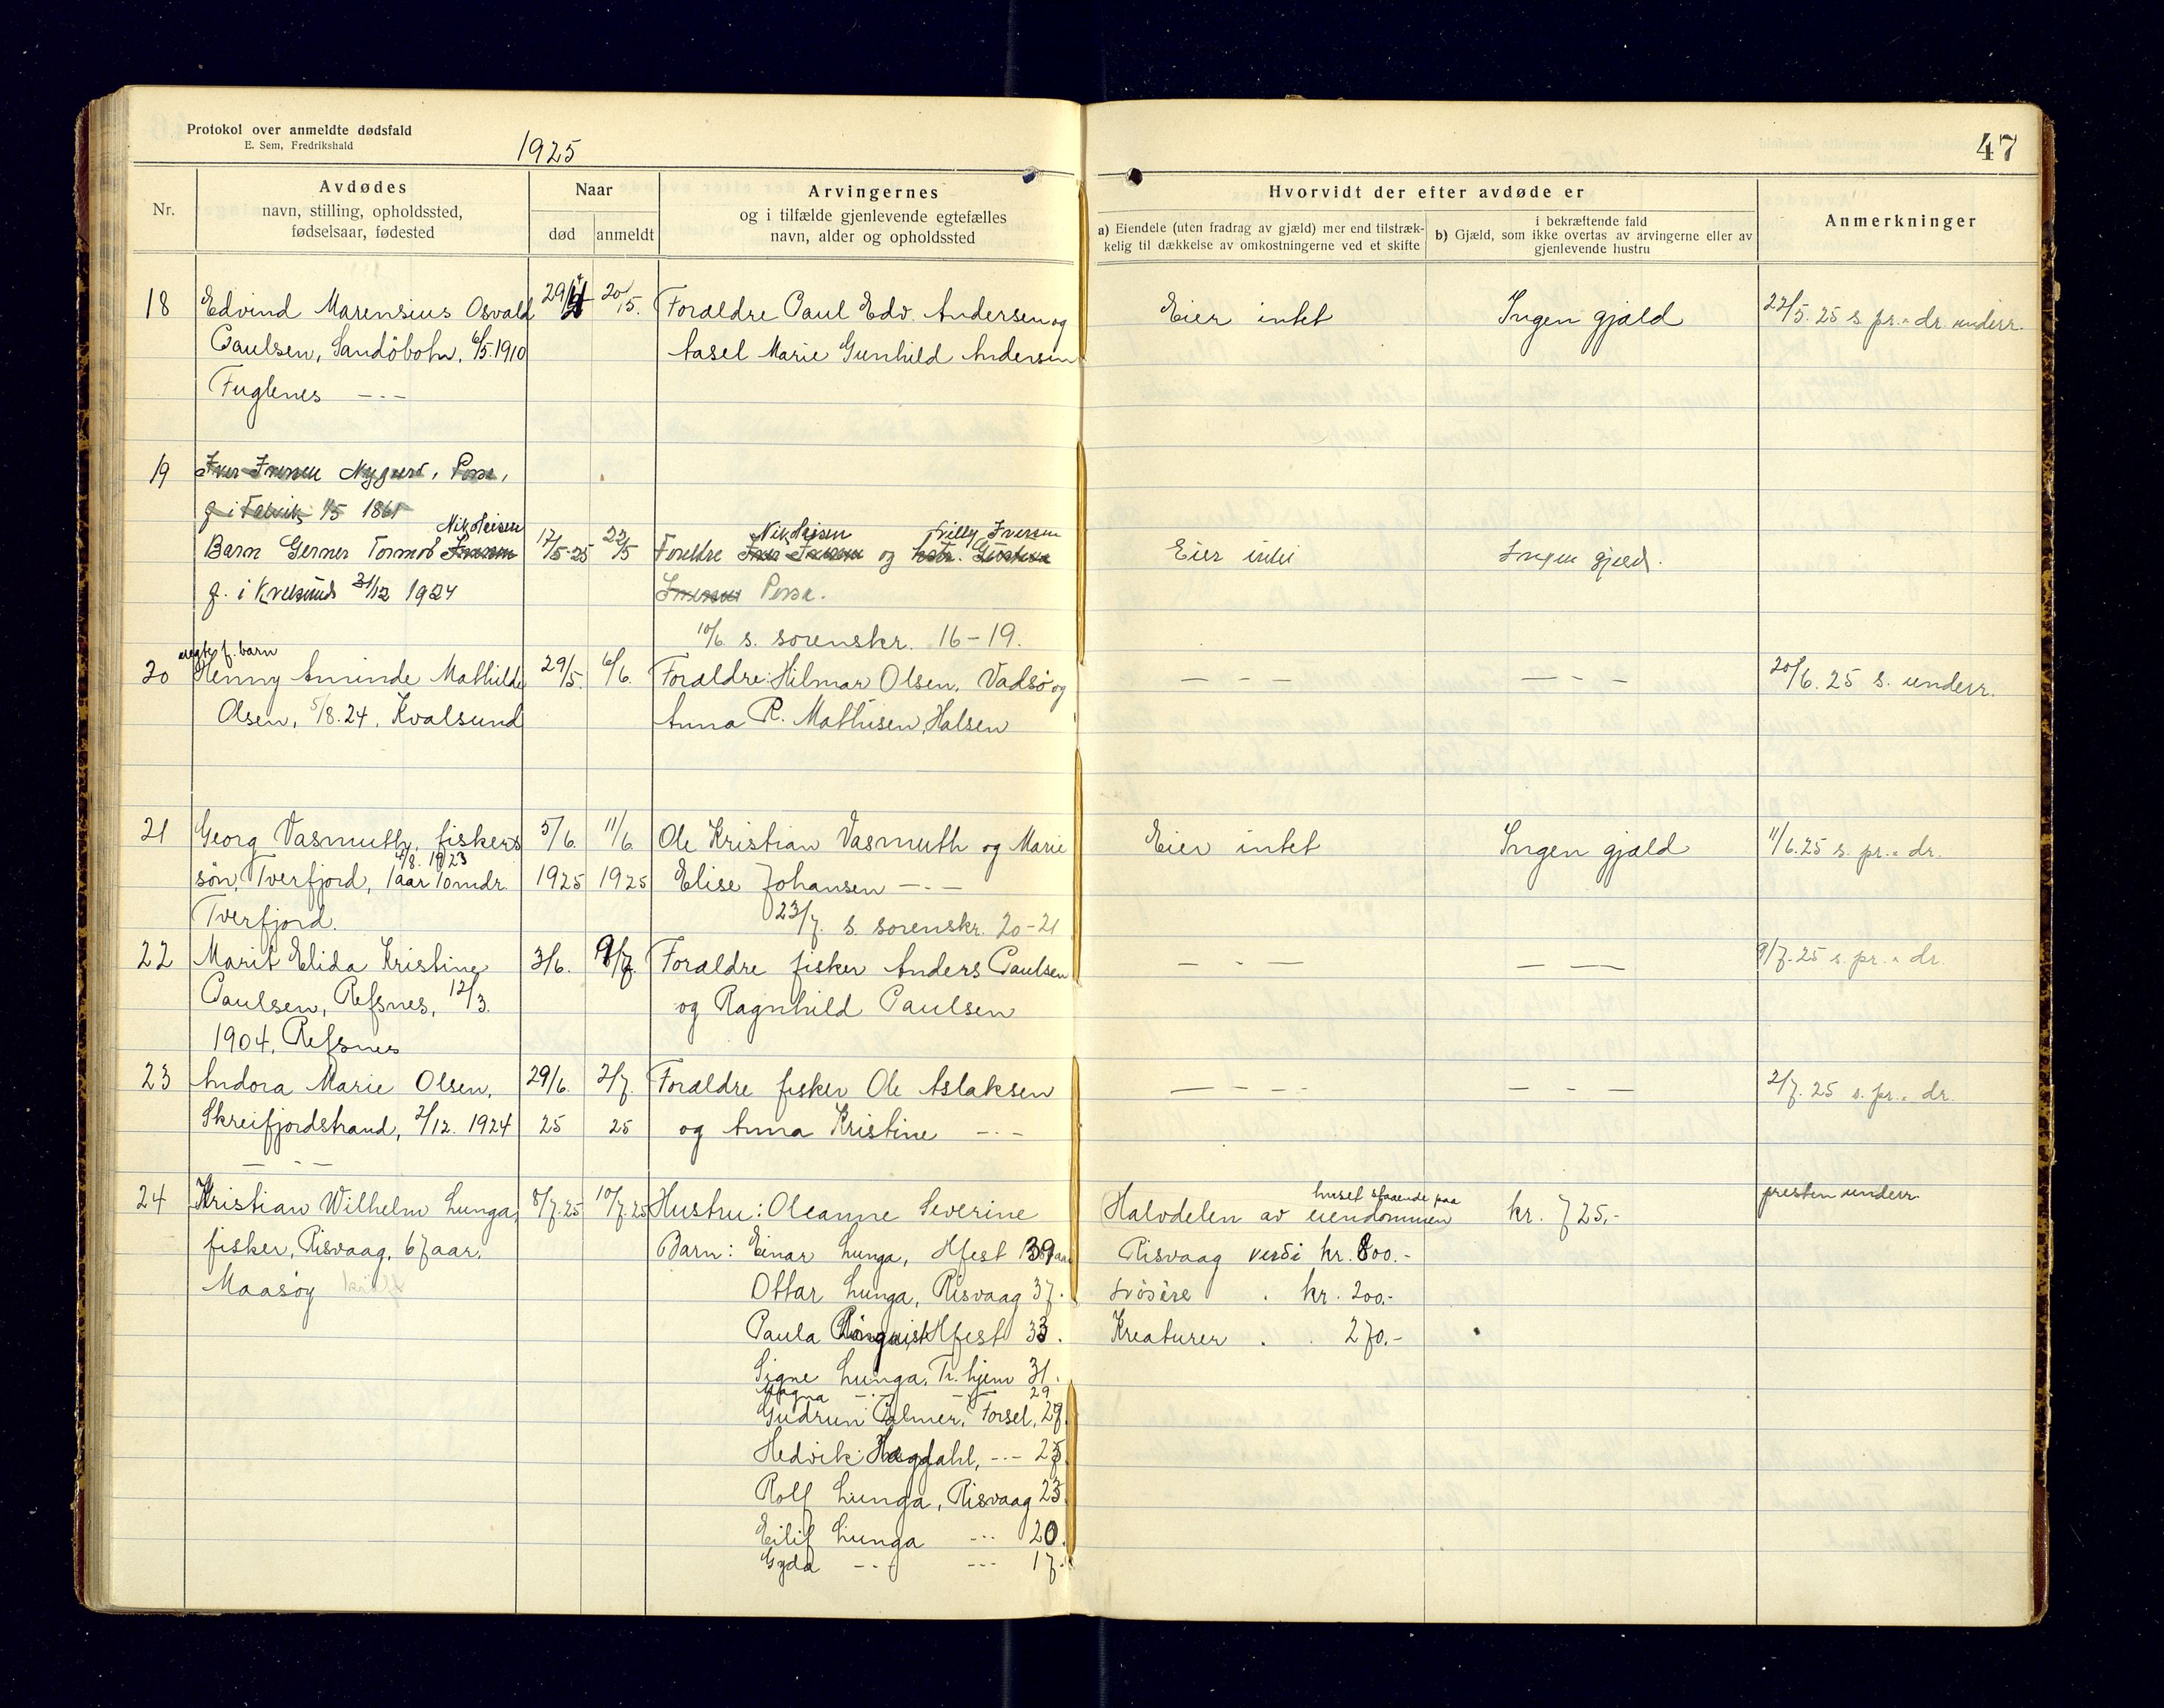 Protokol over anmeldte dødsfald
E. Sem, Fredrikshald
1925
47
Nr.
Avdødes
navn, stilling, opholdssted,
fødselsaar, fødested
Naar
død
anmeldt
Arvingernes
og i tilfælde gjenlevende egtefælles
navn, alder og opholdssted
Hvorvidt der efter avdøde er
a) Eiendele (uten fradrag av gjæld) mer end tilstræk-
kelig til dækkelse av omkostningerne ved et skifte
i bekræftende fald
b) Gjæld, som ikke overtas av arvingerne eller av
gjenlevende hustru
Anmerkninger
18 Edvind Marensius Osvald 29/4 20/5. Forældre Paul Edv. Andersen og Eier intet Ingen gjæld 22/5. 25 s. pr. - dr. underr.
Paulsen, Sandöbotn, 6/5.1910 Aasel Marie Gunhild Andersen
Fuglenes -.-
19 Iver Iversen Nygaard, Porsa,
f. i Talvik 1/5 1861
Nikolaisen Nikolaisen Lilly Iversen
Barn Germer Tormod Iversen 17/5-25 22/5 Foreldre Iver Iversen og hstr. Gustava Eier intet Ingen gjæld.
f. i Kvalsund 31/12 1924 Iversen Porsa.
10/6 s. sorenskr. 16-19.
uegte f. barn
20 Henny Aminde Mathilde 29/5. 6/6. Forældre: Hilmar Olsen, Vadsö og - - - - - - 20/6. 25 s. underr.
Olsen, 5/8.24, Kvalsund Anna R. Mathisen, Halsen
21 Georg Vasmuth, fiskers 5/6. 11/6. Ole Kristian Vasmuth og Marie Eier intet Ingen gjæld 11/6.25 s. pr. - dr.
/8. 1923
søn, Tverfjord, 1 aar 10 mdr. 1925 1925 Elise Johansen -.-
Tverfjord. 23/7. s. sorenskr. 20-21
22 Marit Elida Kristine 3/6. 9/7. Forældre fisker Anders Paulsen - - - - - 9/7.25 s. pr. - dr.
Paulsen, Refsnes, 12/3. og Ragnhild Paulsen
1904, Refsnes
23 Andora Marie Olsen, 29/6. 2/7. Forældre fisker Ole Aslaksen - - - - - - - 2/7. 25 s. pr. - dr.
Skreifjordstrand, 2/12. 1924 25 25 og Anna Kristine -.-
- - -
24 Kristian Wilhelm Lunga, 8/7.25 10/7.25 Hustru: Oleanne Severine
huset staaende paa
Halvdelen av eiendommen kr. 725,- presten underr.
fisker, Risvaag, 67 aar, Barn: Einar Lunga, Hfest 39 aar Risvaag verdi kr. 800.-
Maasøy Ottar Lunga, Risvaag 37. Løsöre . kr. 200.-
Paula Hfest 33. Kreaturer . . 270.-
Signe Lunga, Tr.hjem 31.
Magna -.- -"- 29
Gudrun Palmer, Forsøl, 27.
Hedvik Hagdahl, -.- 25.
Rolf Lunga, Risvaag 23.
Eilif Lunga --- 20.
Gyda -.- --- 17.